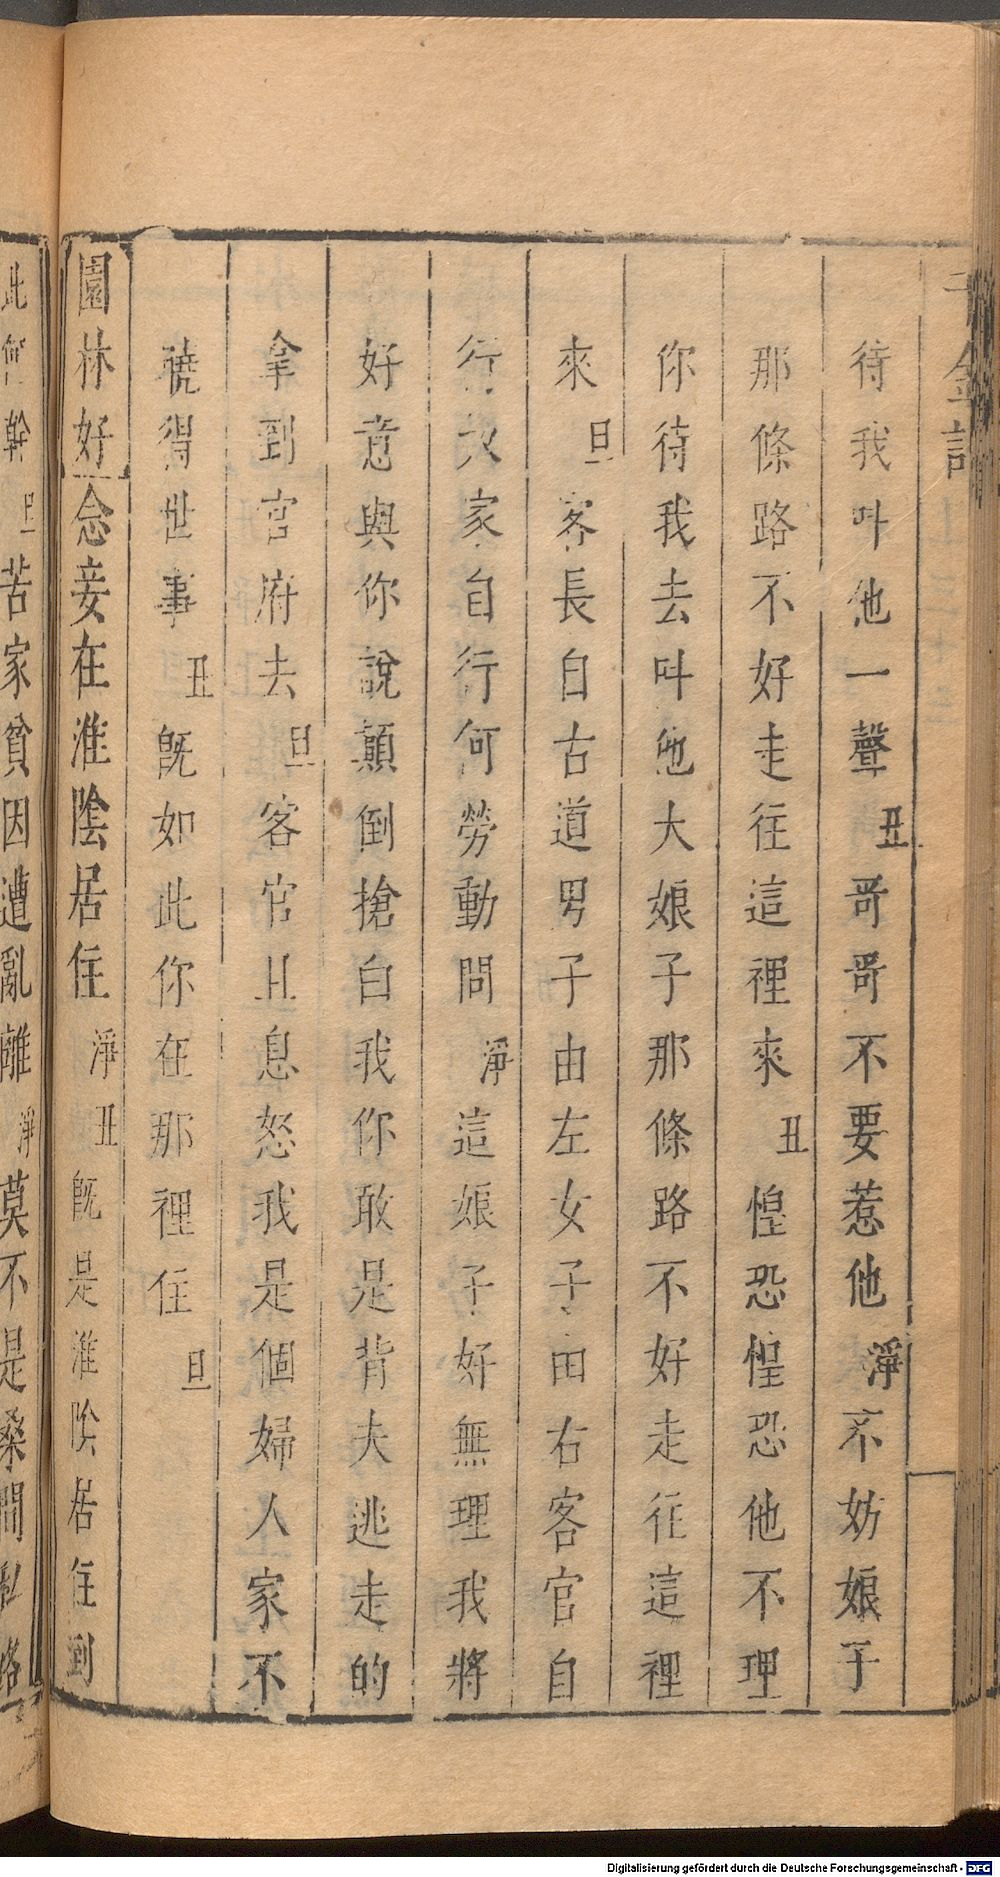 千金記
待我叫他一聲丑哥哥不要惹他淨不妨娘子
那條路不好走往這裡來丑惶恐惶恐他不理
你待我去叫他大娘子那條路不好走往這裡
來旦客長自古道男子由左女子由右客官自
行奴家自行何勞動問淨這娘子好無理我將
好意與你說顛倒搶白我你敢是背夫逃走的
拿到官府去旦客官且息怒我是個婦人家不
曉得世事丑既如此你在那裡住旦
園林好念妾在淮陰居住淨丑既是淮陰居住到
此何幹旦苦家貧因遭亂離淨莫不是桑間私
Digitalisierung gefördert durch die Deutsche Forschungsgemeinschaft - DFG